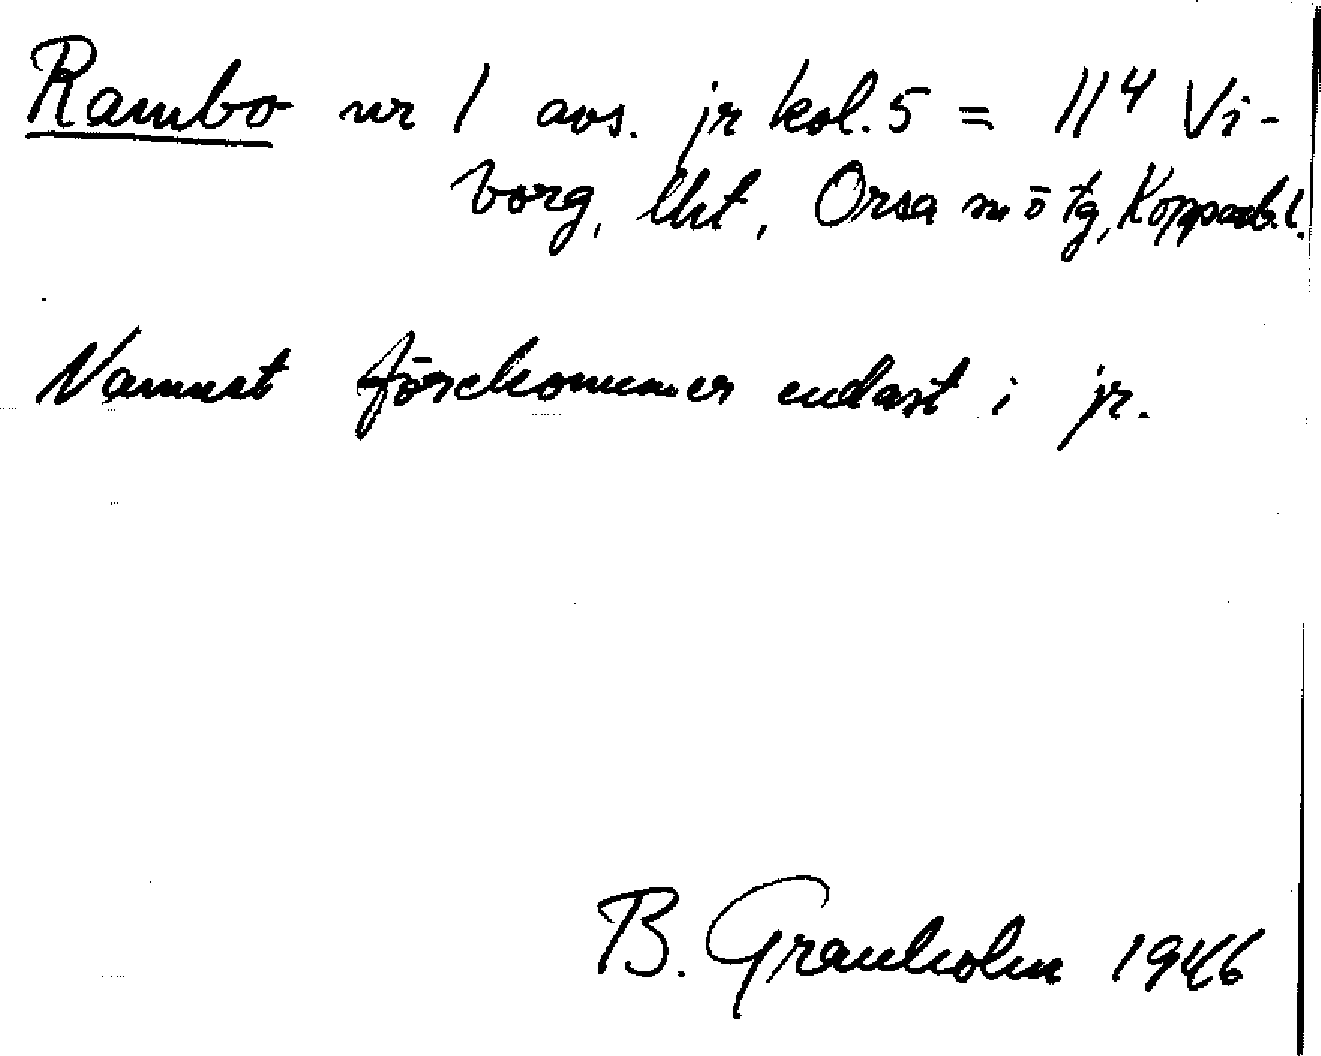 Rambo nr 1 avs. jr kol. 5 = 11⁴ Vi-
borg, lht, Orsa m ö tg, Kopparb. l.
Namnet förekommer endast i jr.
B. Granholm 1946